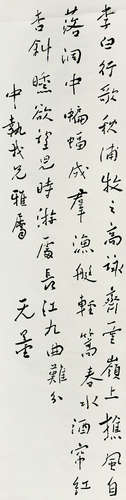 李白行歌秋浦牧之高詠齊雲嶺上樵風自
落洞中蝙蝠成羣漁艇輕篙春水酒帘紅
杏斜曛欲望兒時游處長江九曲難分
中執我兄雅屬
无量